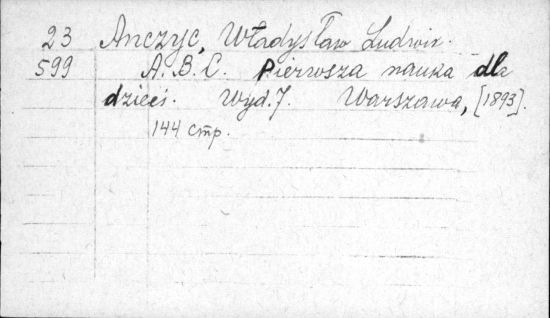 23 Anczyc, Władysław Ludwik.
599 A. B. C. Pierwsza nauka dla
dzieci. Wyd. 7. Warszawa, [1893].
144 стр.